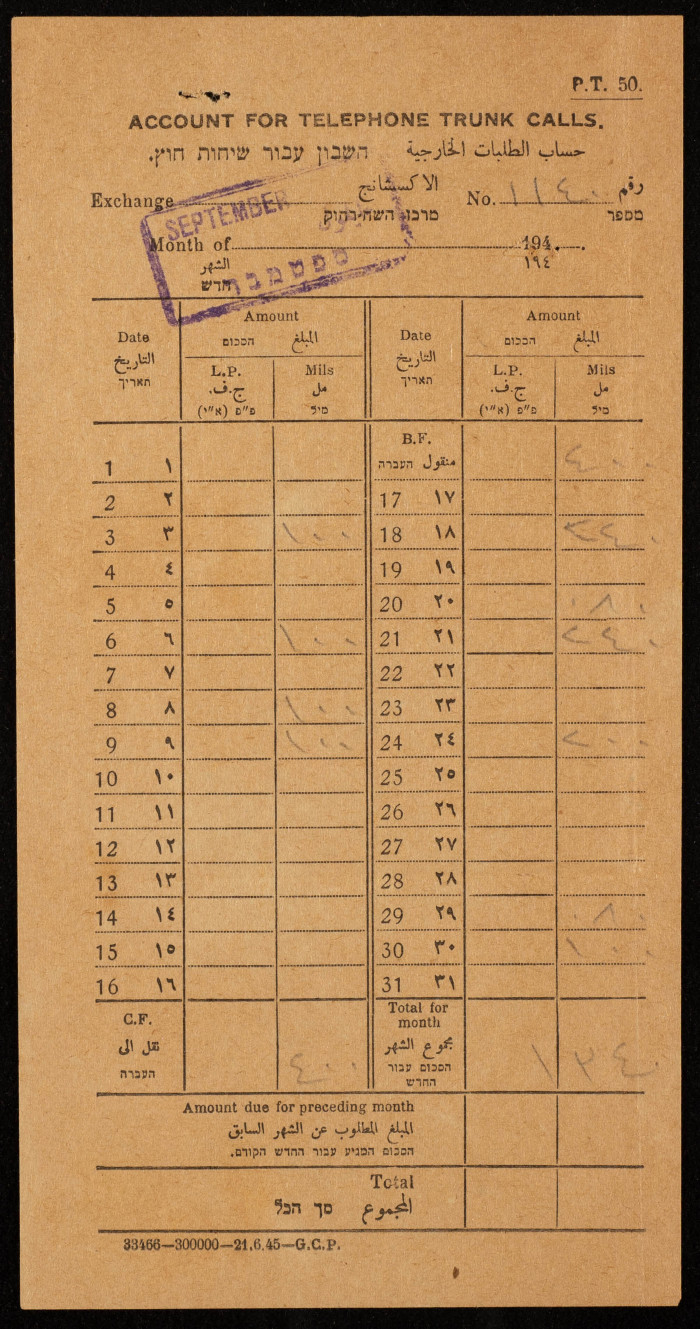 P.T. 50.
ACCOUNT FOR TELEPHONE TRUNK CALLS.
חשבון עבור שיחות חוץ. حساب الطلبات الخارجية
Exchange الاكسشانج No. ١١٤٠ رقم
מספר
SEPTEMBER
ספטמבר
Month of 194
الشهر ١٩٤
חדש
Date Amount Date Amount
التاريخ הסכום المبلغ التاريخ הסכום المبلغ
תאריך L.P. Mils תאריך L.P. Mils
ج.ف. مل ج.ف. مل
פ״פ (א״י) מיל פ״פ (א״י) מיל
B.F.
1 ١ העברה منقول ٤٠٠
2 ٢ 17 ١٧
3 ٣ ١٠٠ 18 ١٨ ٢٤٠
4 ٤ 19 ١٩
5 ٥ 20 ٢٠ ٠٨٠
6 ٦ ١٠٠ 21 ٢١ ٢٤٠
7 ٧ 22 ٢٢
8 ٨ ١٠٠ 23 ٢٣
9 ٩ ١٠٠ 24 ٢٤ ٢٠٠
10 ١٠ 25 ٢٥
11 ١١ 26 ٢٦
12 ١٢ 27 ٢٧
13 ١٣ 28 ٢٨
14 ١٤ 29 ٢٩ ٠٨٠
15 ١٥ 30 ٣٠ ١٠٠
16 ١٦ 31 ٣١
C.F. Total for
month
نقل الى مجموع الشهر
העברה ٤٠٠ הסכום עבור ١٣٤٠
החדש
Amount due for preceding month
المبلغ المطلوب عن الشهر السابق
הסכום המגיע עבור החדש הקודם.
Total
סך הכל المجموع
33466—300000—21.6.45—G.C.P.